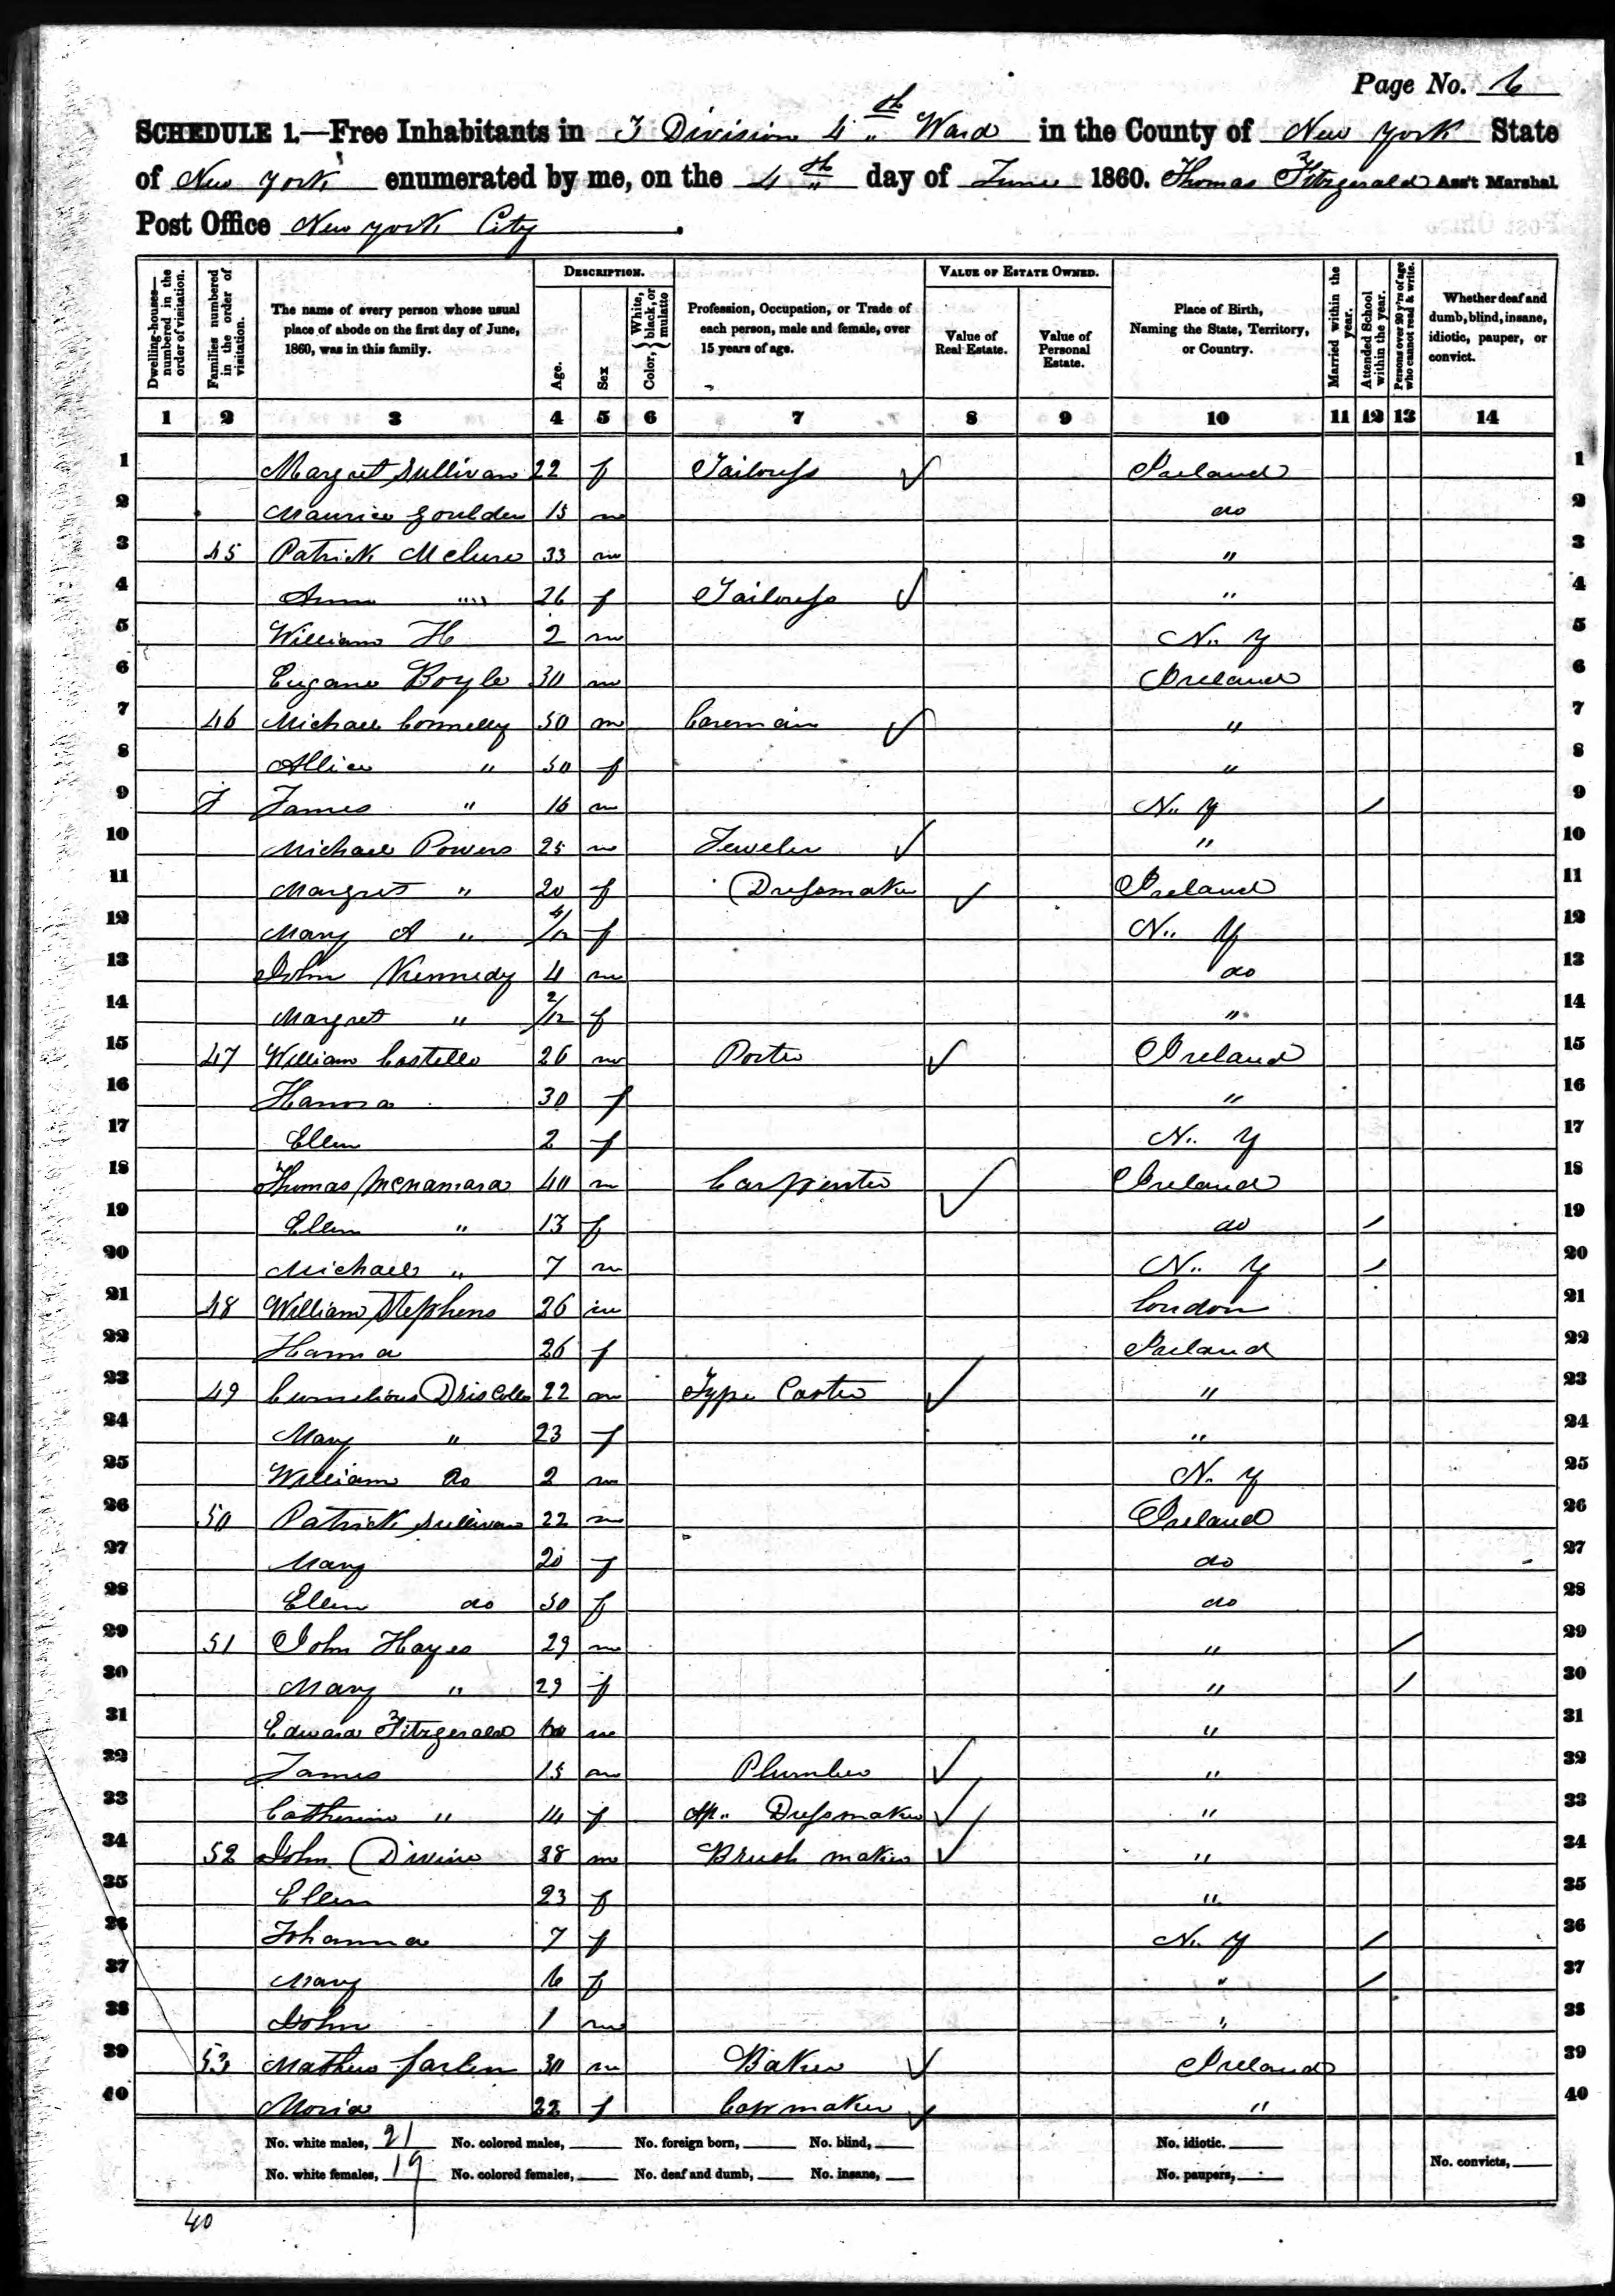 Page No. 6
SCHEDULE 1.—Free Inhabitants in I Division 4th Ward in the County of New York State
of New York enumerated by me, on the 4th day of June 1860. Thomas Fitzgerald Ass't Marshal
Post Office New York City.
Dwelling-houses—numbered in the order of visitation.
Families numbered in the order of visitation.
The name of every person whose usual place of abode on the first day of June, 1860, was in this family.
DESCRIPTION.
Age.
Sex
Color, { White, black, or mulatto
Profession, Occupation, or Trade of each person, male and female, over 15 years of age.
VALUE OF ESTATE OWNED.
Value of Real Estate.
Value of Personal Estate.
Place of Birth, Naming the State, Territory, or Country.
Married within the year.
Attended School within the year.
Persons over 20 y'rs of age who cannot read & write.
Whether deaf and dumb, blind, insane, idiotic, pauper, or convict.
1 2 3 4 5 6 7 8 9 10 11 12 13 14
1 Margret Sullivan 22 f Tailoress ✓ Ireland 1
2 Maurice Goulden 15 m do 2
3 45 Patrick 33 m " 3
4 Ann "" 26 f Tailoress ✓ " 4
5 William H 2 m N.. Y 5
6 Eugane Boyle 30 m Ireland 6
7 46 Michael Connelly 50 m Coreman ✓ " 7
8 Allice " 50 f " 8
9 James " 16 m N.. Y / 9
10 Michael Powers 25 m Jeweler ✓ " 10
11 Margret " 20 f Dressmaker ✓ Ireland 11
12 Mary A " 4/12 f N.. Y 12
13 John Kennedy 4 m do 13
14 Margret " 2/12 f " 14
15 47 William Costello 26 m Porter ✓ Ireland 15
16 Hanora 30 f " 16
17 Ellen 2 f N.. Y 17
18 Thomas McNamara 40 m Carpenter ✓ Ireland 18
19 Ellen " 13 f do / 19
20 Michael " 7 m N.. Y / 20
21 48 William Stephens 26 m London 21
22 Hanna 26 f Ireland 22
23 49 Curnelious Driscoll 22 m Type Caster ✓ " 23
24 Mary " 23 f " 24
25 William do 2 m N. Y 25
26 50 Patrick Sullivan 22 m Ireland 26
27 Mary 20 f do 27
28 Ellen do 50 f do 28
29 51 John Hayes 29 m " / 29
30 Mary " 29 f " / 30
31 Edward Fitzgerald 60 m " 31
32 James 15 m Plumber ✓ " 32
33 Catherine " 14 f Ap.. Dressmaker ✓ " 33
34 52 John Divine 28 m Brush maker ✓ " 34
35 Ellen 23 f " 35
36 Johanna 7 f N. Y / 36
37 Mary 6 f " / 37
38 John 1 m " 38
39 53 Mathew 30 m Baker ✓ Ireland 39
40 Moria 22 f Capmaker ✓ " 40
No. white males, 21 No. colored males, No. foreign born, No. blind, No. idiotic.
No. white females, 19 No. colored females, No. deaf and dumb, No. insane, No. paupers, No. convicts,
40